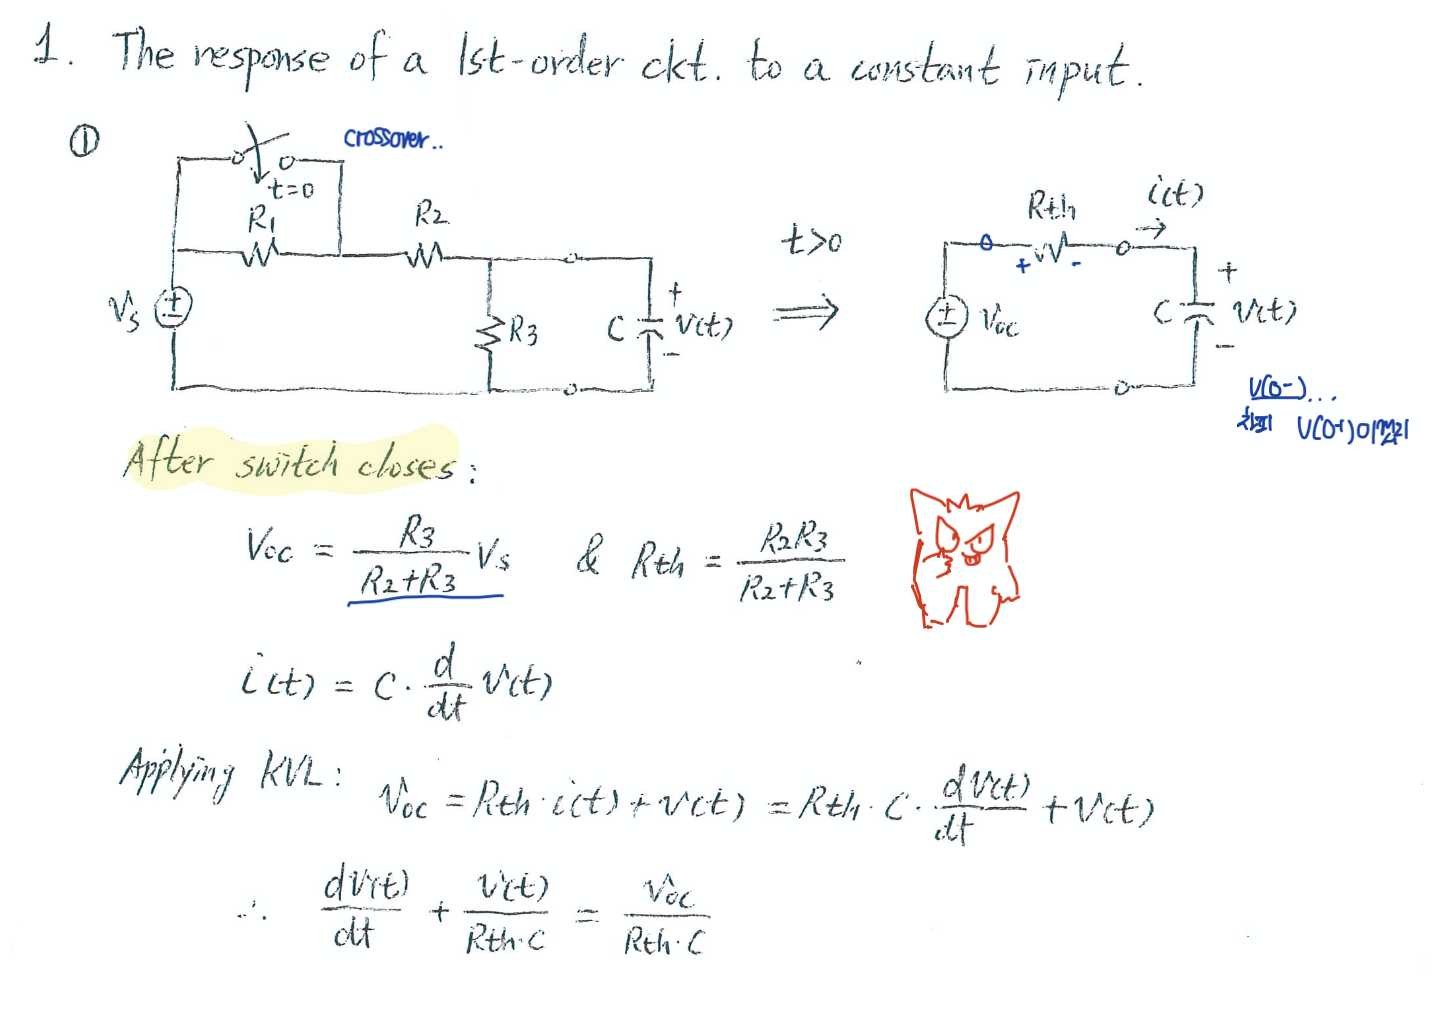 1. The response of a 1st-order ckt. to a constant input.
①
crossover..
t=0
R1
R2
Vs
R3
C
+
v(t)
-
t>0
⇒
Rth
i(t)
→
+ -
Voc
C
+
v(t)
-
V(0-)...
V(0+)
After switch closes:
Voc = R3/(R2+R3) Vs & Rth = R2R3/(R2+R3)
i(t) = C · d/dt v(t)
Applying KVL: Voc = Rth · i(t) + v(t) = Rth · C · dv(t)/dt + v(t)
∴ dv(t)/dt + v(t)/(Rth·C) = Voc/(Rth·C)